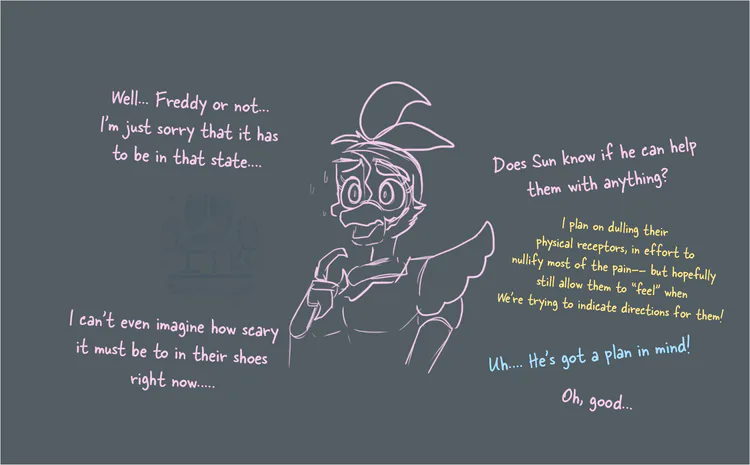 Well... Freddy or not...
I'm just sorry that it has
to be in that state....
I can't even imagine how scary
it must be to in their shoes
right now.....
Does Sun know if he can help
them with anything?
I plan on dulling their
physical receptors, in effort to
nullify most of the pain-- but hopefully
still allow them to "feel" when
We're trying to indicate directions for them!
Uh.... He's got a plan in mind!
Oh, good...